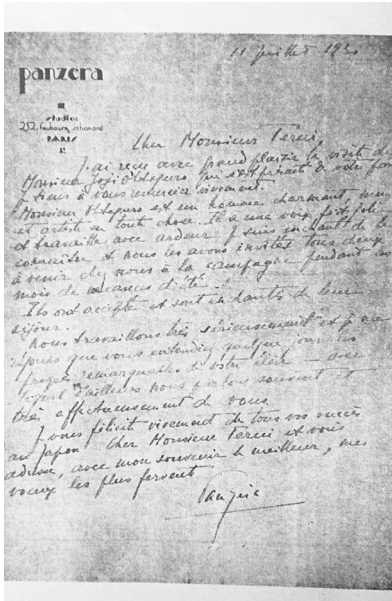 11 juillet 1930
panzera
studio:
252, faubourg st honoré
PARIS
8e
Cher Monsieur
J'ai reçu avec grand plaisir la visite de
Monsieur qui s'est de votre part
Je tiens à vous remercier vivement.
Monsieur est un homme charmant,
et artiste en tout chose. Il a une voix fort jolie
et travaille avec ardeur. Je suis enchanté de le
connaître et nous les avons invités tous deux
à venir chez nous à la campagne pendant les
mois de vacances d'été.
Ils ont accepté et sont enchantés de leur
séjour.
Nous travaillons très sérieusement et je me
réjouis que vous entendiez quelque jour les
progrès remarquables de votre élève - avec
d'ailleurs nous parlons souvent et
très affectueusement de vous
Je vous félicite vivement de tous vos succès
au Japon Cher Monsieur et vous
adresse, avec mon souvenir le meilleur, mes
voeux les plus fervents
Panzéra